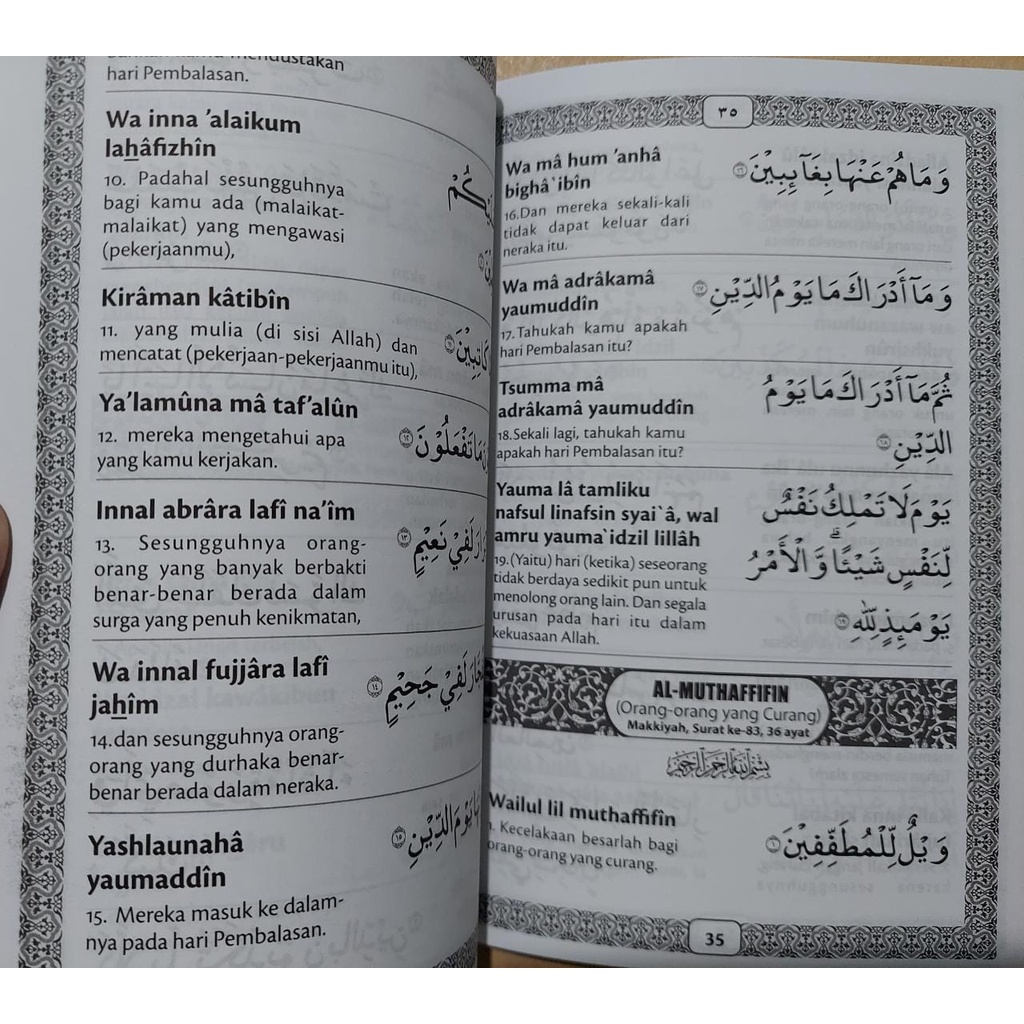 hari Pembalasan.
Wa inna 'alaikum
lahâfizhîn
10. Padahal sesungguhnya
bagi kamu ada (malaikat-
malaikat) yang mengawasi
(pekerjaanmu),
Kirâman kâtibîn
11. yang mulia (di sisi Allah) dan
mencatat (pekerjaan-pekerjaanmu itu),
كَاتِبِيْنَ ۝١١
Ya'lamûna mâ taf'alûn
12. mereka mengetahui apa
yang kamu kerjakan.
مَا تَفْعَلُوْنَ ۝١٢
Innal abrâra lafî na'îm
13. Sesungguhnya orang-
orang yang banyak berbakti
benar-benar berada dalam
surga yang penuh kenikmatan,
لَفِيْ نَعِيْمٍ ۝١٣
Wa innal fujjâra lafî
jahîm
14.dan sesungguhnya orang-
orang yang durhaka benar-
benar berada dalam neraka.
لَفِيْ جَحِيْمٍ ۝١٤
Yashlaunahâ
yaumaddîn
15. Mereka masuk ke dalam-
nya pada hari Pembalasan.
يَوْمَ الدِّيْنِ ۝١٥
٣٥
Wa mâ hum 'anhâ
bighâ`ibîn
16.Dan mereka sekali-kali
tidak dapat keluar dari
neraka itu.
وَمَا هُمْ عَنْهَا بِغَآىِٕبِيْنَ ۝١٦
Wa mâ adrâkamâ
yaumuddîn
17.Tahukah kamu apakah
hari Pembalasan itu?
وَمَآ أَدْرَاكَ مَا يَوْمُ الدِّيْنِ ۝١٧
Tsumma mâ
adrâkamâ yaumuddîn
18.Sekali lagi, tahukah kamu
apakah hari Pembalasan itu?
ثُمَّ مَآ أَدْرَاكَ مَا يَوْمُ
الدِّيْنِ ۝١٨
Yauma lâ tamliku
nafsul linafsin syai`â, wal
amru yauma`idzil lillâh
19.(Yaitu) hari (ketika) seseorang
tidak berdaya sedikit pun untuk
menolong orang lain. Dan segala
urusan pada hari itu dalam
kekuasaan Allah.
يَوْمَ لَا تَمْلِكُ نَفْسٌ
لِّنَفْسٍ شَيْئًا ۗ وَّالْأَمْرُ
يَوْمَىِٕذٍ لِلّٰهِ ۝١٩
AL-MUTHAFFIFIN
(Orang-orang yang Curang)
Makkiyah, Surat ke-83, 36 ayat
بِسْمِ اللهِ الرَّحْمٰنِ الرَّحِيْمِ
Wailul lil muthaffifîn
1. Kecelakaan besarlah bagi
orang-orang yang curang.
وَيْلٌ لِّلْمُطَفِّفِيْنَ ۝١
35